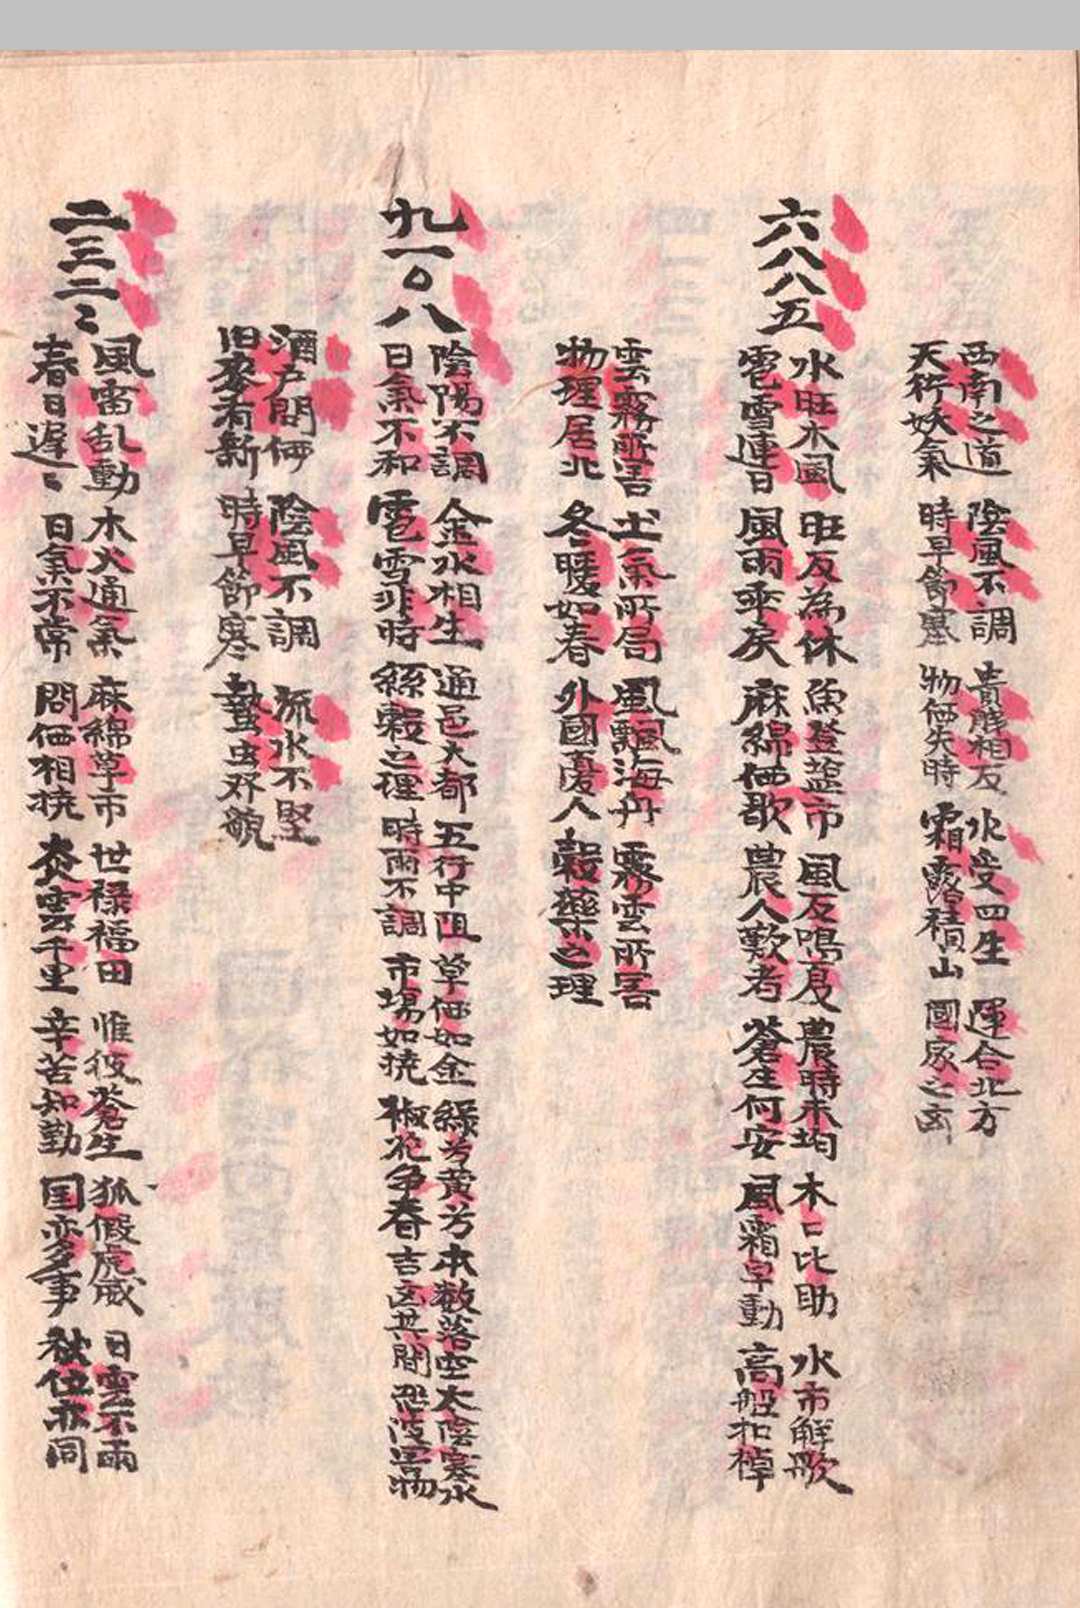 西南之道 陰風不調 貴賤相反 水受四生 運合北方
天行妖氣 時早節寒 物価失時 霜露積山 國家之
六八八五
水旺木風 旺反為休 魚登藍市 風反鳴夏 農時未均 木〻比助 水市解歌
雹雪連日 風雨乖矣 麻綿価歇 農人歎者 蒼生何安 風霜早動 高船和棹
雲霧所害 土氣所局 風飄海舟 霧雲所害
物理居北 冬暖如春 外國憂人 穀藥之理
九一〇八
陰陽不調 金水相生 通邑大都 五行中阻 草価如金 綠兮黄兮 本数落空 太陰寒水
日氣不和 雹雪非時 絲穀之理 時雨不調 市場如撓 椒花争春 吉凶其間 恐浸害物
酒戸問価 陰風不調 流水不堅
旧麥有新 時早節寒 蟄虫
二三二〻
風雷乱動 木火通氣 麻綿草市 世禄福田 惟彼蒼生 狐假虎威 日雲不雨
春日遲〻 日氣不常 問価相撓 炎雲千里 辛苦知勤 国変多事 秋位亦同